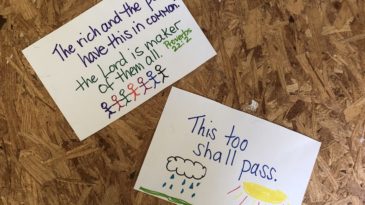 The rich and the
have this in common:
the Lord is maker
of them all.
Proverbs
22:2
This too
shall pass.